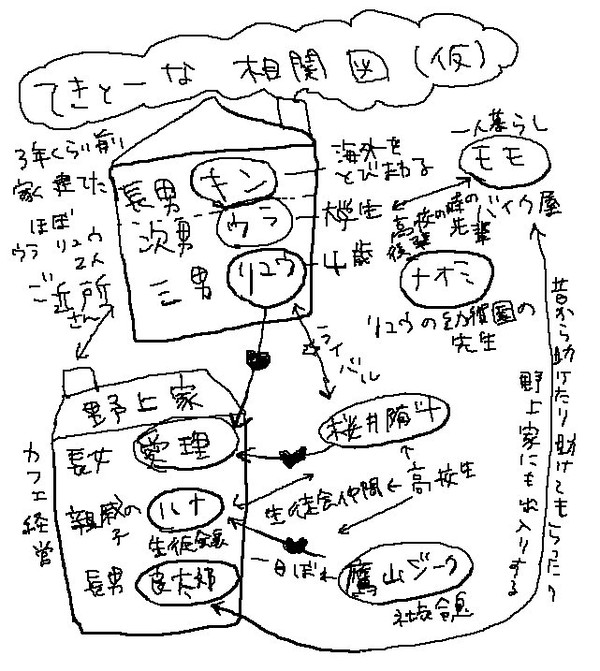 てきとーな 相関図(仮)
3年くらい前
家建てた
ほぼ
ウラ リュウ
2人
ご近所
さん
長男 キン
海外を
とびまわる
次男 ウラ
大学生
三男 リュウ
4歳
一人暮らし
モモ
バイク屋
高校の時の
先輩
後輩
ナオミ
リュウの幼稚園の
先生
ライバル
昔から助けたり助けてもらったり
野上家にも出入りする
野上家
カフェ経営
長女 愛理
桜井侑斗
親戚の
子
ハナ
生徒会長
生徒会仲間
高校生
長男 良太郎
一目ぼれ
鷹山ジーク
社長令息